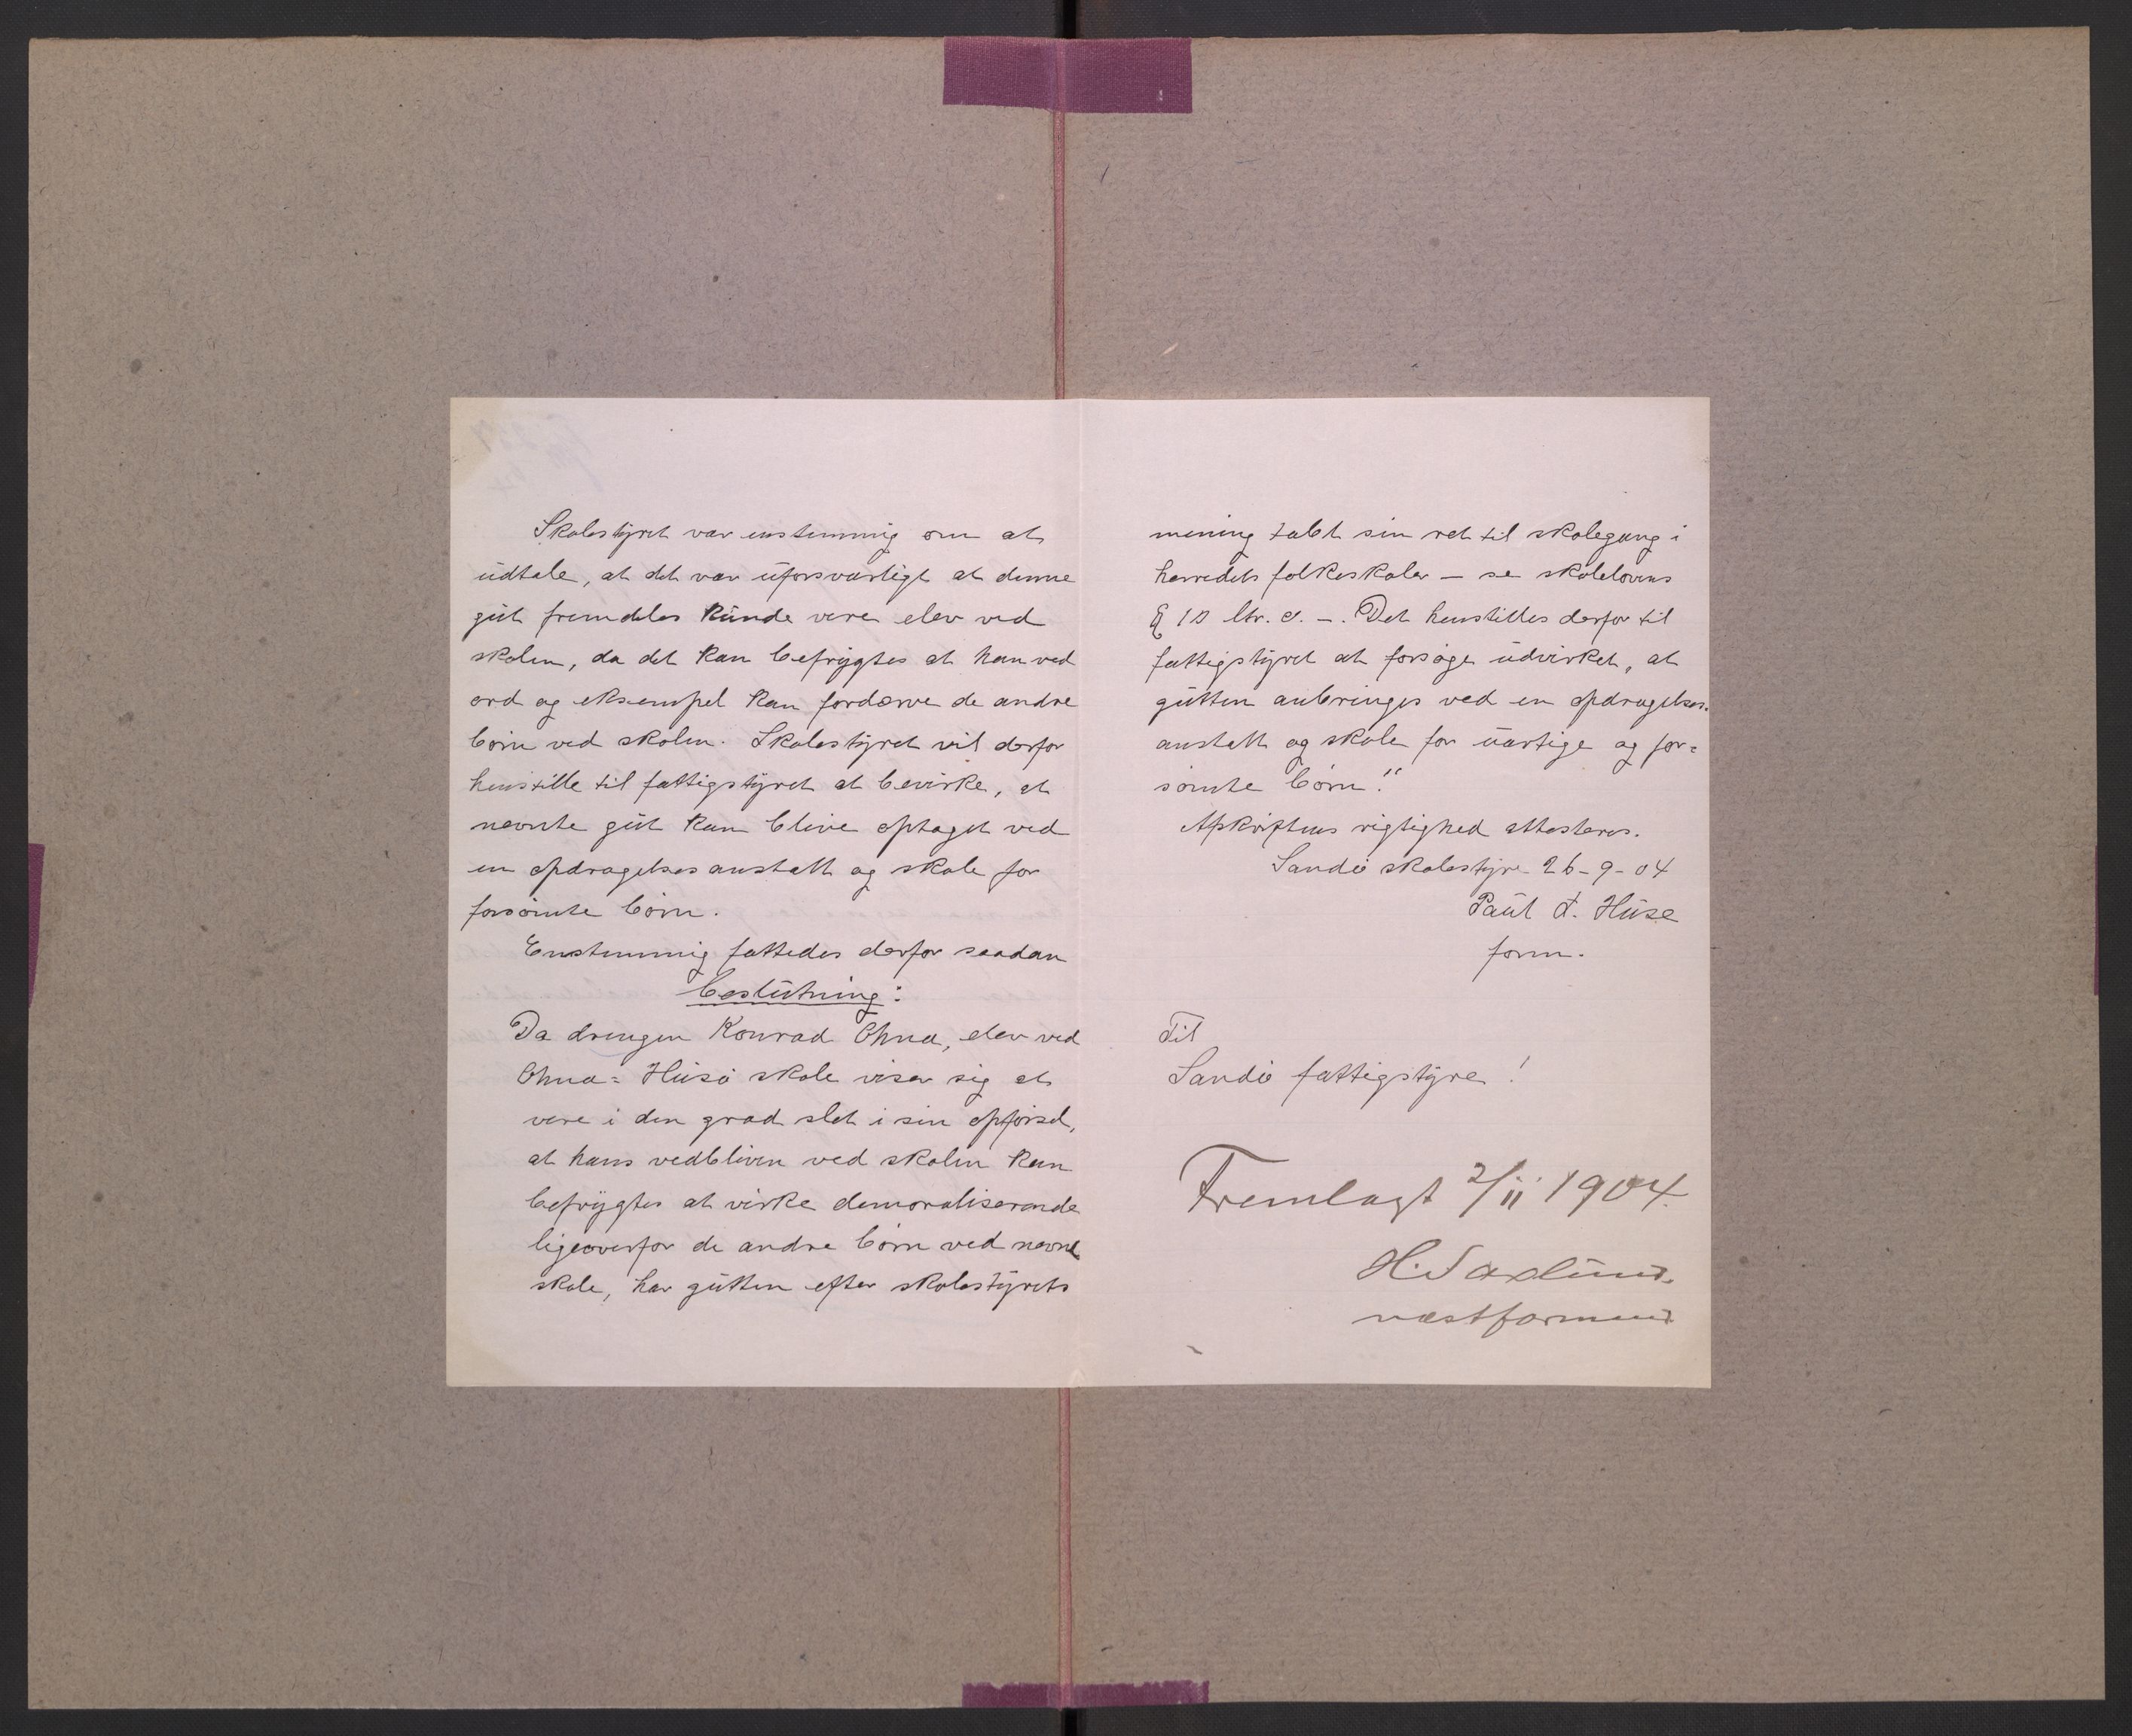 Skolestyret var enstemmig om at
udtale, at det var uforsvarligt at denne
gut fremdeles kunde være elev ved
skolen, da det kan befrygtes at han ved
ord og eksempel kan fordærve de andre
børn ved skolen. Skolestyret vil derfor
henstille til fattigstyret at bevirke, at
nævnte gut kan blive optaget ved
en opdragelsesanstalt og skole for
forsømte børn.
Enstemmig fattedes derfor saadan
beslutning:
Da drengen Konrad Ohna, elev ved
Ohna= Husø skole viser sig at
være i den grad slet i sin opførsel,
at hans vedbliven ved skolen kan
befrygtes at virke demoraliserende
ligeoverfor de andre børn ved nævnte
skole, har gutten efter skolestyrets
mening tabt sin ret til skolegang i
herredets folkeskoler – se skolelovens
§ 10 ltr. c. –. Det henstilles derfor til
fattigstyret at forsøge udvirket, at
gutten anbringes ved en opdragelses-
anstalt og skole for uartige og for=
sømte børn."
Afskriftens rigtighed attesteres.
Sandø skolestyre 26-9-04
Paul L. Huse
form.
Til
Sandø fattigstyre!
Fremlagt 2/11 1904.
H. Saxlund.
næstformand